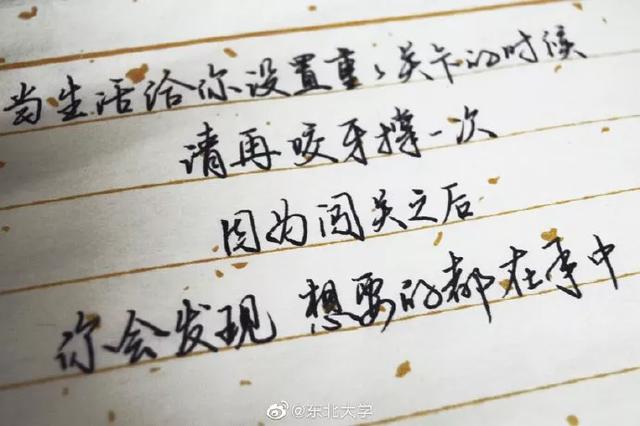 当生活给你设置重重关卡的时候
请再咬牙撑一次
因为闯关之后
你会发现 想要的都在手中
@东北大学